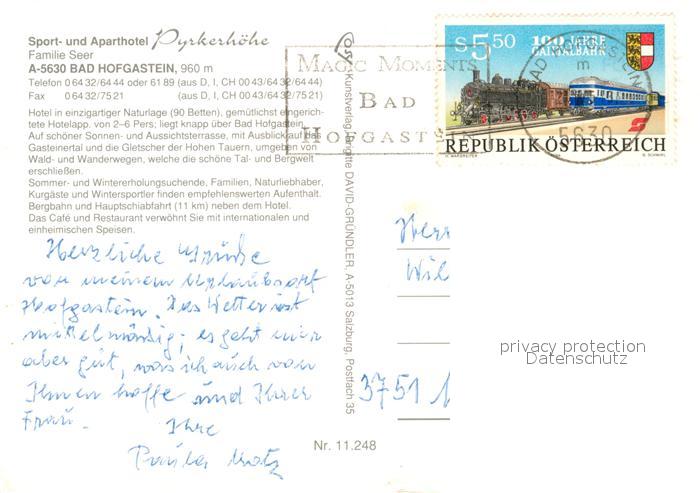 Sport- und Aparthotel Pyrkerhöhe
Familie Seer
A-5630 BAD HOFGASTEIN, 960 m
Telefon 0 64 32/64 44 oder 61 89 (aus D, I, CH 00 43/64 32/64 44)
Fax 0 64 32/75 21 (aus D, I, CH 00 43/64 32/75 21)
Hotel in einzigartiger Naturlage (90 Betten), gemütlichst eingerich-
tete Hotelapp. von 2–6 Pers; liegt knapp über Bad Hofgastein.
Auf schöner Sonnen- und Aussichtsterrasse, mit Ausblick auf das
Gasteinertal und die Gletscher der Hohen Tauern, umgeben von
Wald- und Wanderwegen, welche die schöne Tal- und Bergwelt
erschließen.
Sommer- und Wintererholungsuchende, Familien, Naturliebhaber,
Kurgäste und Wintersportler finden empfehlenswerten Aufenthalt.
Bergbahn und Hauptschiabfahrt (11 km) neben dem Hotel.
Das Café und Restaurant verwöhnt Sie mit internationalen und
einheimischen Speisen.
Herzliche Grüße
von meinem Urlaubsort
Hofgastein. Das Wetter ist
mittelmäßig; es geht mir
aber gut, was ich auch von
Ihnen hoffe und Ihrer
Frau.
Ihre
Paula Motz
Nr. 11.248
Kunstverlag Brigitte DAVID-GRÜNDLER, A-5013 Salzburg, Postfach 35
MAGIC MOMENTS
BAD
HOFGASTEIN
S 5,50
100 JAHRE
GAILTALBAHN
5630
REPUBLIK ÖSTERREICH
Herr
Wil
3751
privacy protection
Datenschutz